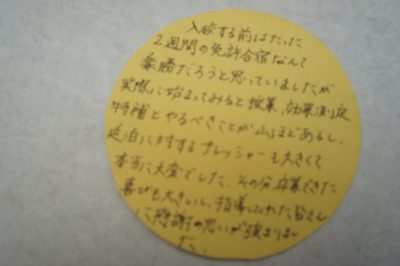 入校する前はたった
2週間の免許合宿なんて
楽勝だろうと思っていましたが
実際に始まってみると授業、効果測定
補習とやるべきことが山ほどあるし、
延泊に対するプレッシャーも大きくて
本当に大変でした。その分、卒業できた
喜びも大きいし、指導してくれた皆さん
に感謝の思いが強まりまし
た。